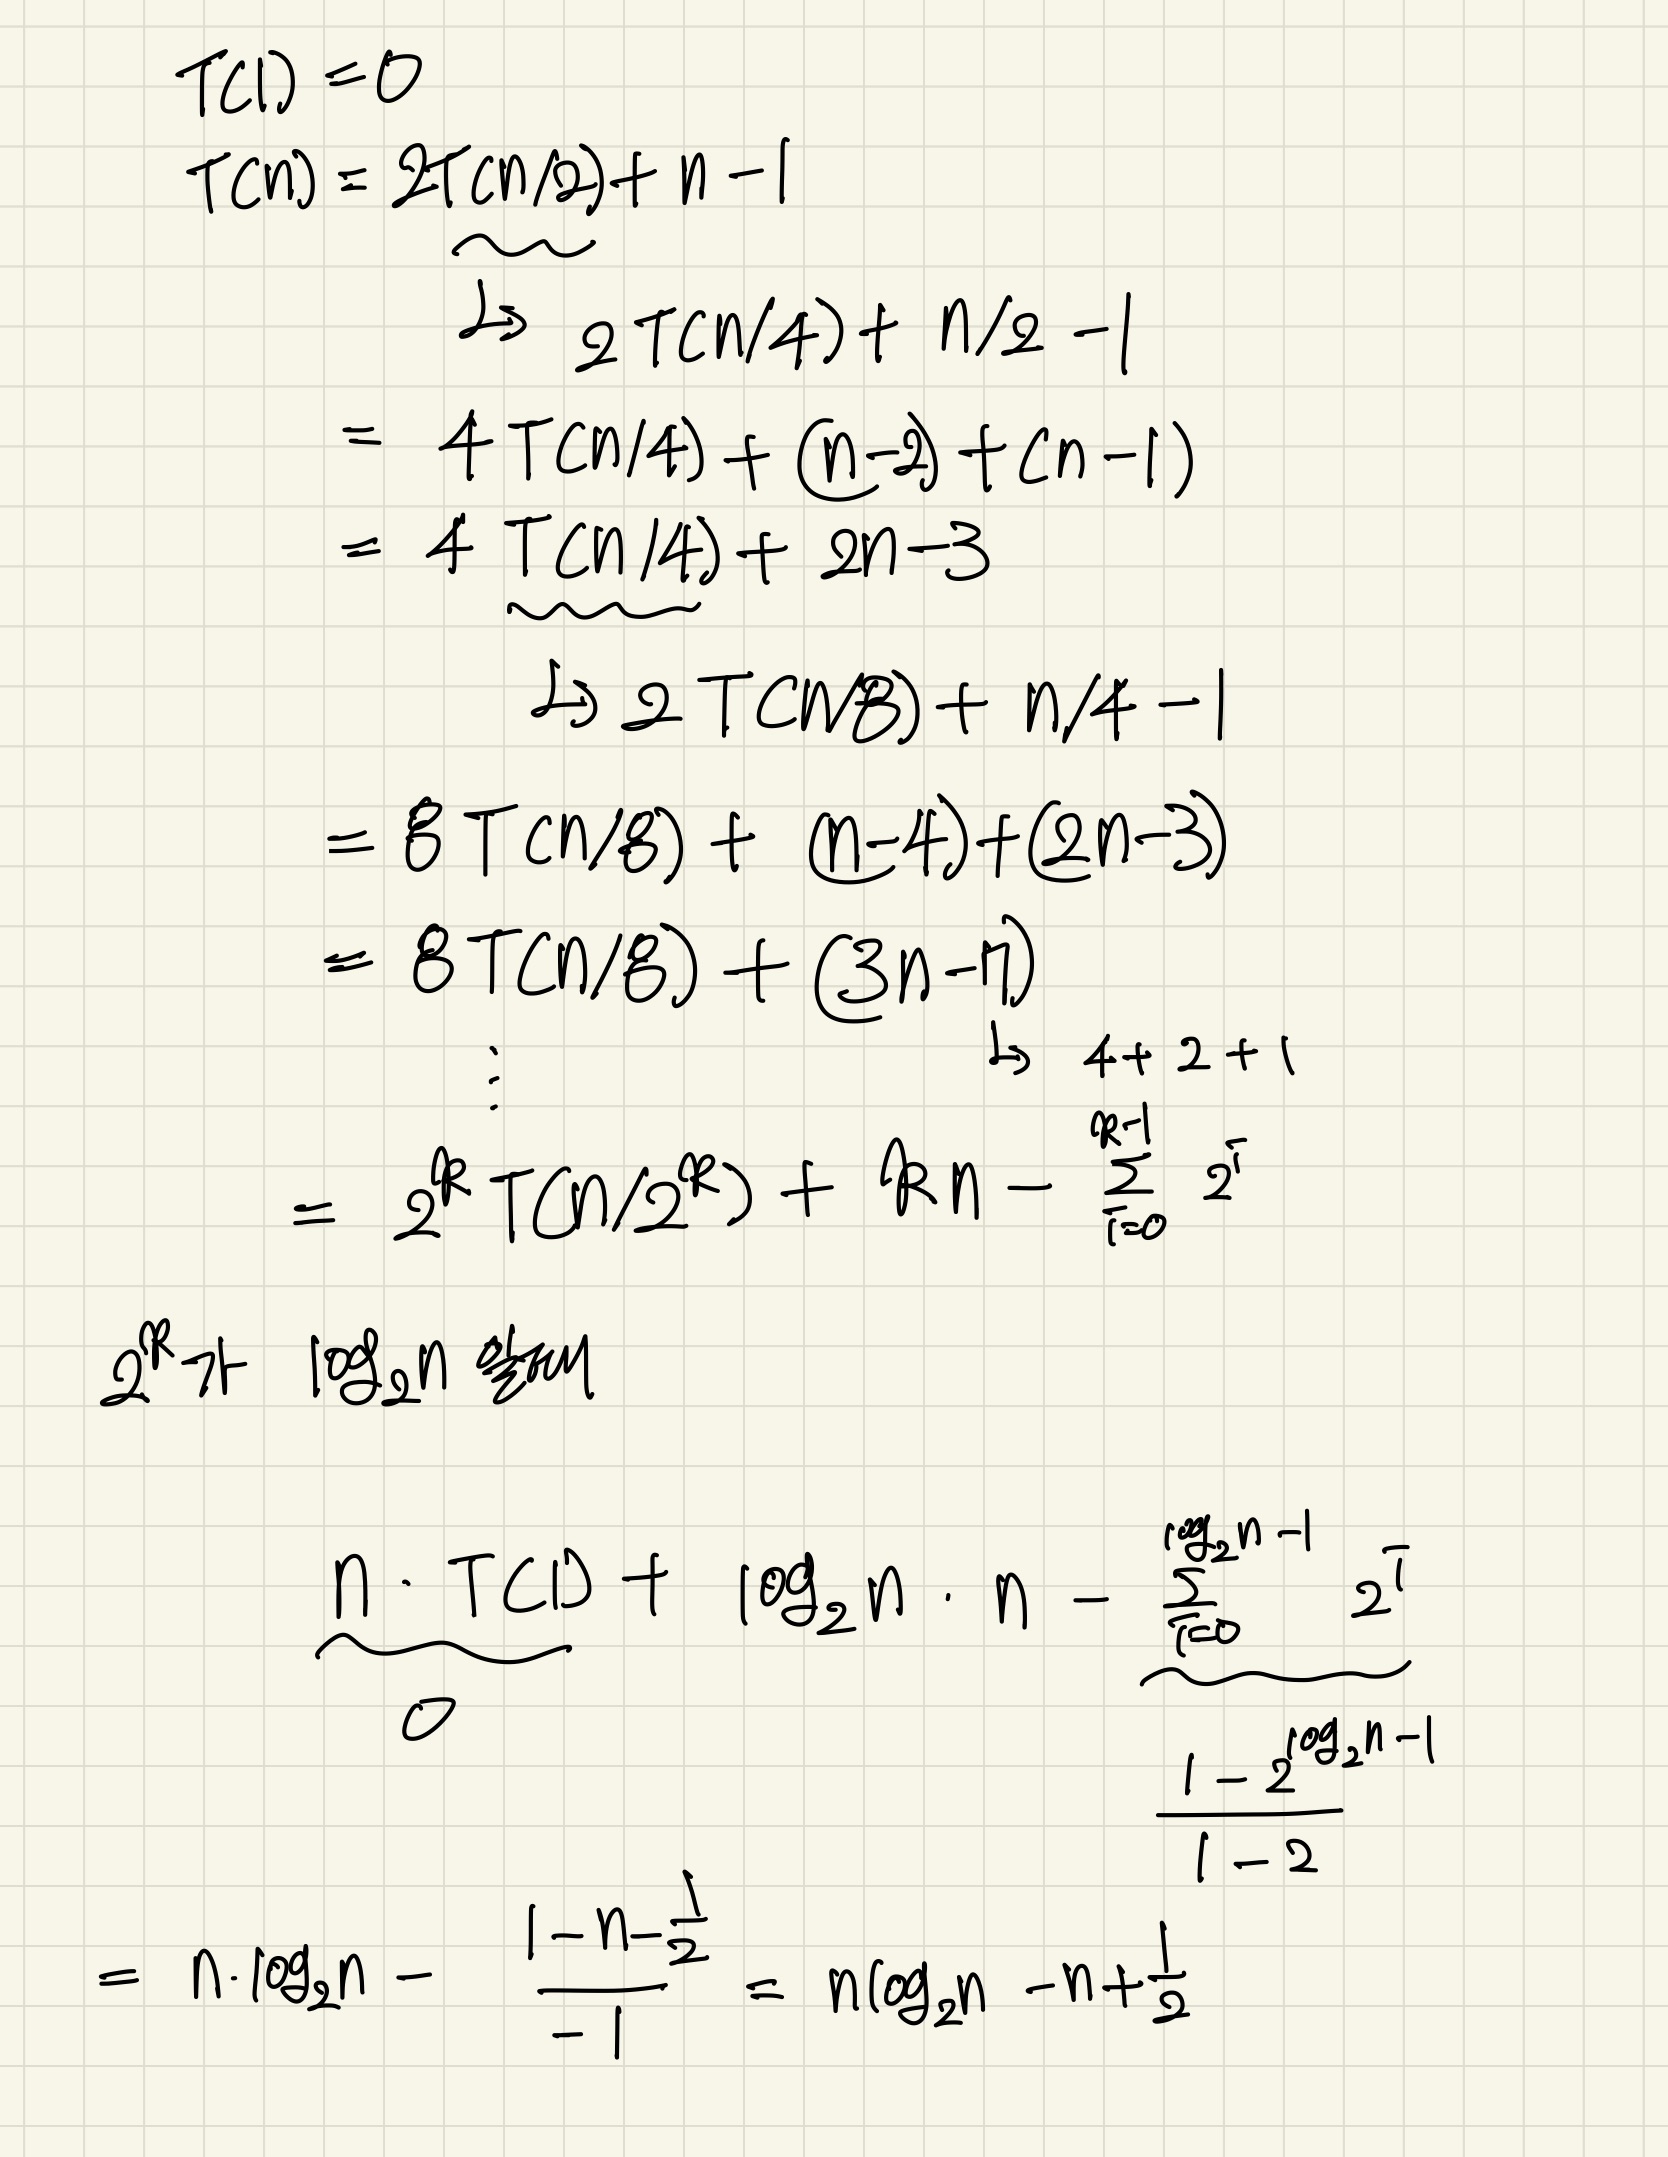 T(1) = 0
T(n) = 2T(n/2) + n - 1
↳ 2T(n/4) + n/2 - 1
= 4T(n/4) + (n-2) + (n-1)
= 4T(n/4) + 2n-3
↳ 2T(n/8) + n/4 - 1
= 8T(n/8) + (n-4) + (2n-3)
= 8T(n/8) + (3n-7)
↳ 4+2+1
⋮
= 2^k T(n/2^k) + kn - \sum_{i=0}^{k-1} 2^i
2^k가 log₂n 일때
n · T(1) + log₂n · n - \sum_{i=0}^{log₂n-1} 2^i
0
\frac{1-2^{log₂n-1}}{1-2}
= n·log₂n - \frac{1-n-\frac{1}{2}}{-1} = nlog₂n -n+\frac{1}{2}